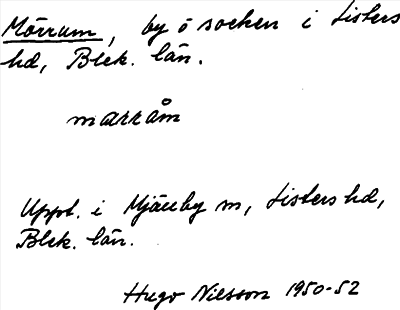 Mörrum, by o socken i Listers
hd, Blek. län.
marråm
Uppt. i Mjällby sn, Listers hd,
Blek. län.
Hugo Nilsson 1950-52